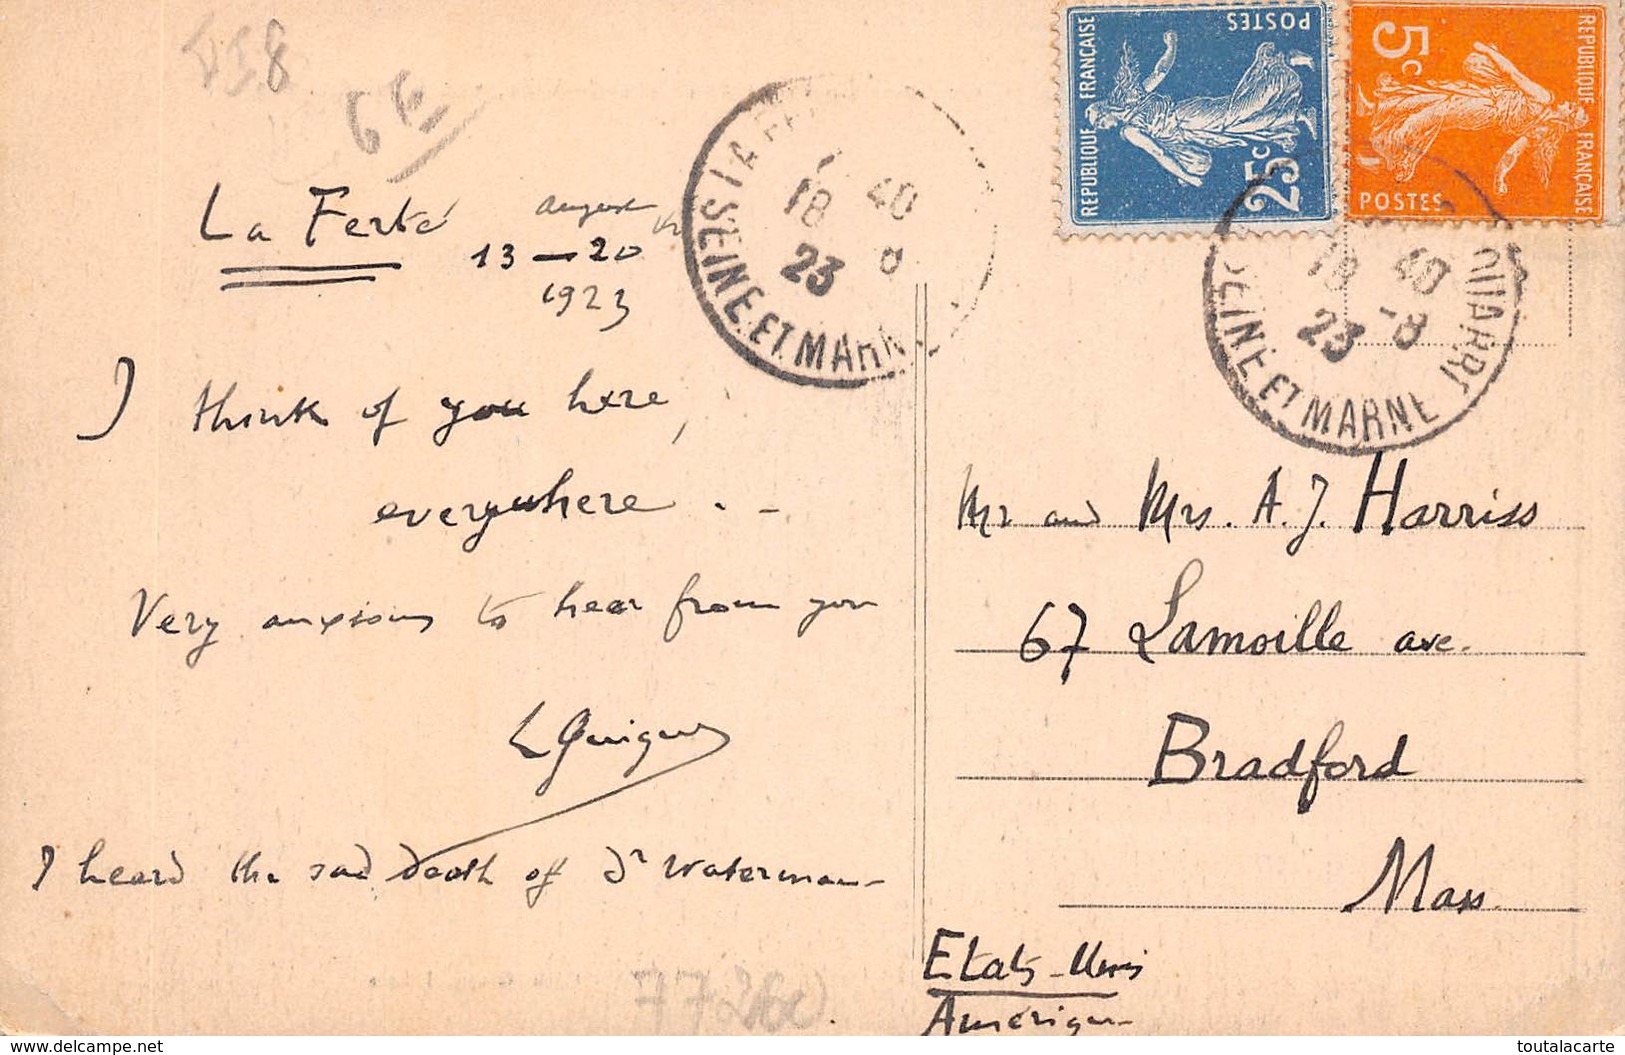 La Ferté
August
13 — 20
1923
I think of you here,
everywhere . -
Very anxious to hear from you
I heard the sad death of Dr Waterman -
REPUBLIQUE FRANÇAISE
POSTES
25c
REPUBLIQUE FRANÇAISE
POSTES
5c
18 40
23 8
SEINE ET MARNE
18 40
23 -8
SEINE ET MARNE
Mr and Mrs. A. J. Harriss
67 Lamoille ave.
Bradford
Mass.
Etats-Unis
Amérique
www.delcampe.net
toutalacarte